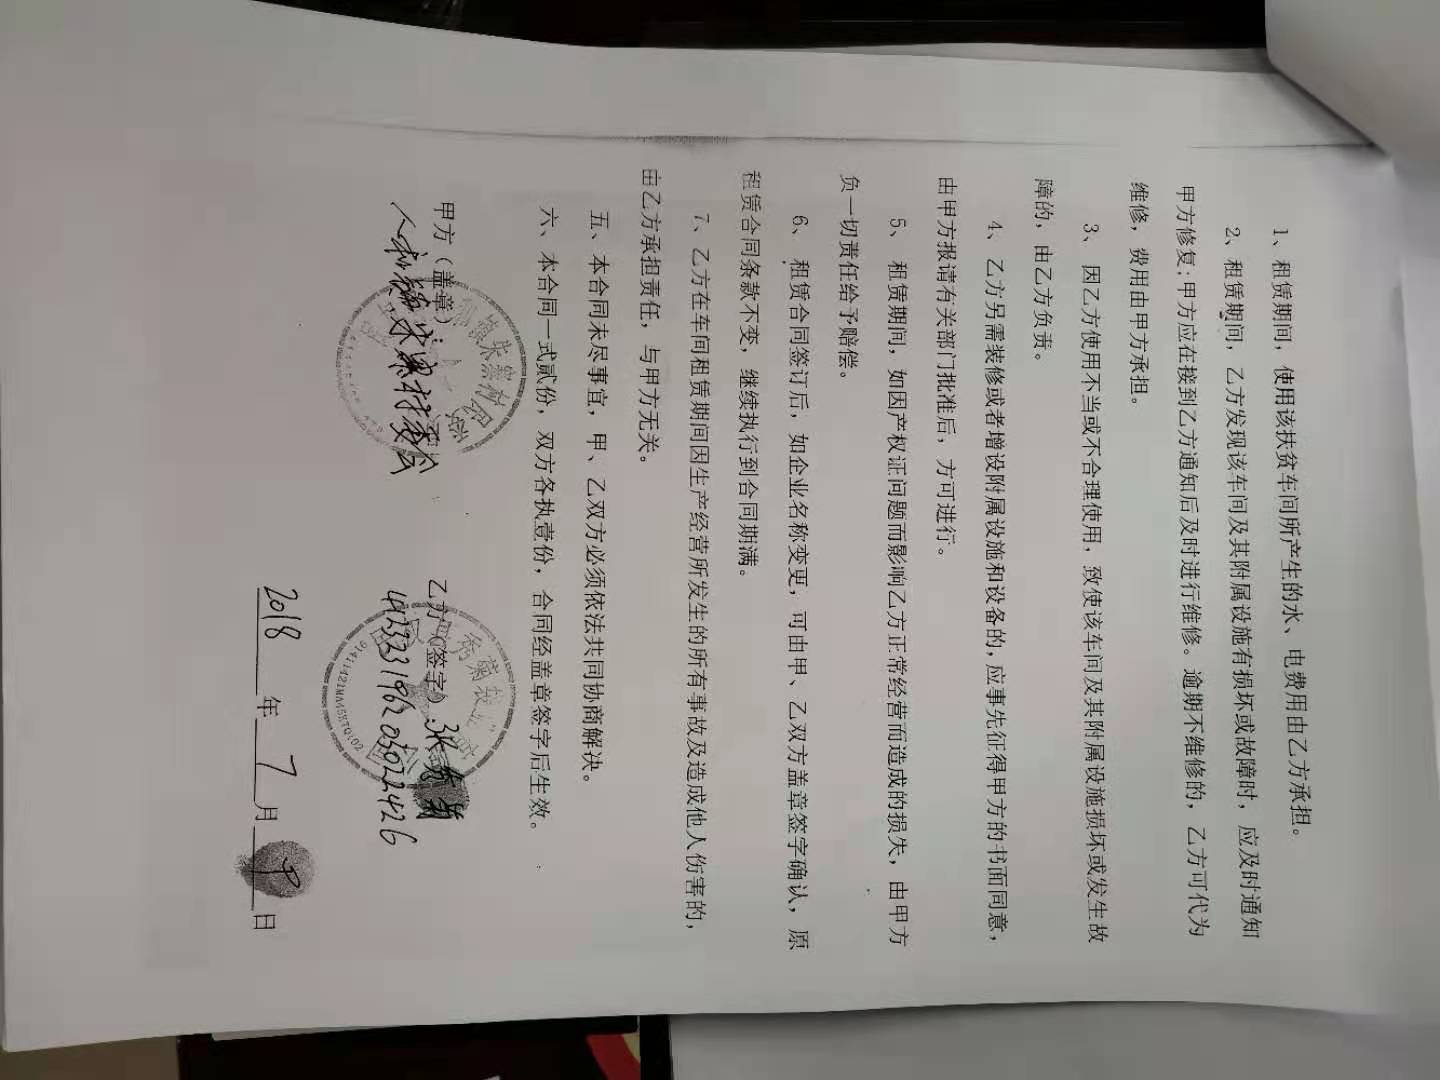 1、租赁期间，使用该扶贫车间所产生的水、电费用由乙方承担。
2、租赁期间，乙方发现该车间及其附属设施有损坏或故障时，应及时通知
甲方修复；甲方应在接到乙方通知后及时进行维修。逾期不维修的，乙方可代为
维修，费用由甲方承担。
3、因乙方使用不当或不合理使用，致使该车间及其附属设施损坏或发生故
障的，由乙方负责。
4、乙方另需装修或者增设附属设施和设备的，应事先征得甲方的书面同意，
由甲方报请有关部门批准后，方可进行。
5、租赁期间，如因产权证问题而影响乙方正常经营而造成的损失，由甲方
负一切责任给予赔偿。
6、租赁合同签订后，如企业名称变更，可由甲、乙双方盖章签字确认，原
租赁合同条款不变，继续执行到合同期满。
7、乙方在车间租赁期间因生产经营所发生的所有事故及造成他人伤害的，
由乙方承担责任，与甲方无关。
五、本合同未尽事宜，甲、乙双方必须依法共同协商解决。
六、本合同一式贰份，双方各执壹份，合同经盖章签字后生效。
甲方（盖章）：
人和镇朱寨村委会
乙方（签字）：张秀菊
412323196203022426
2018年7月 日